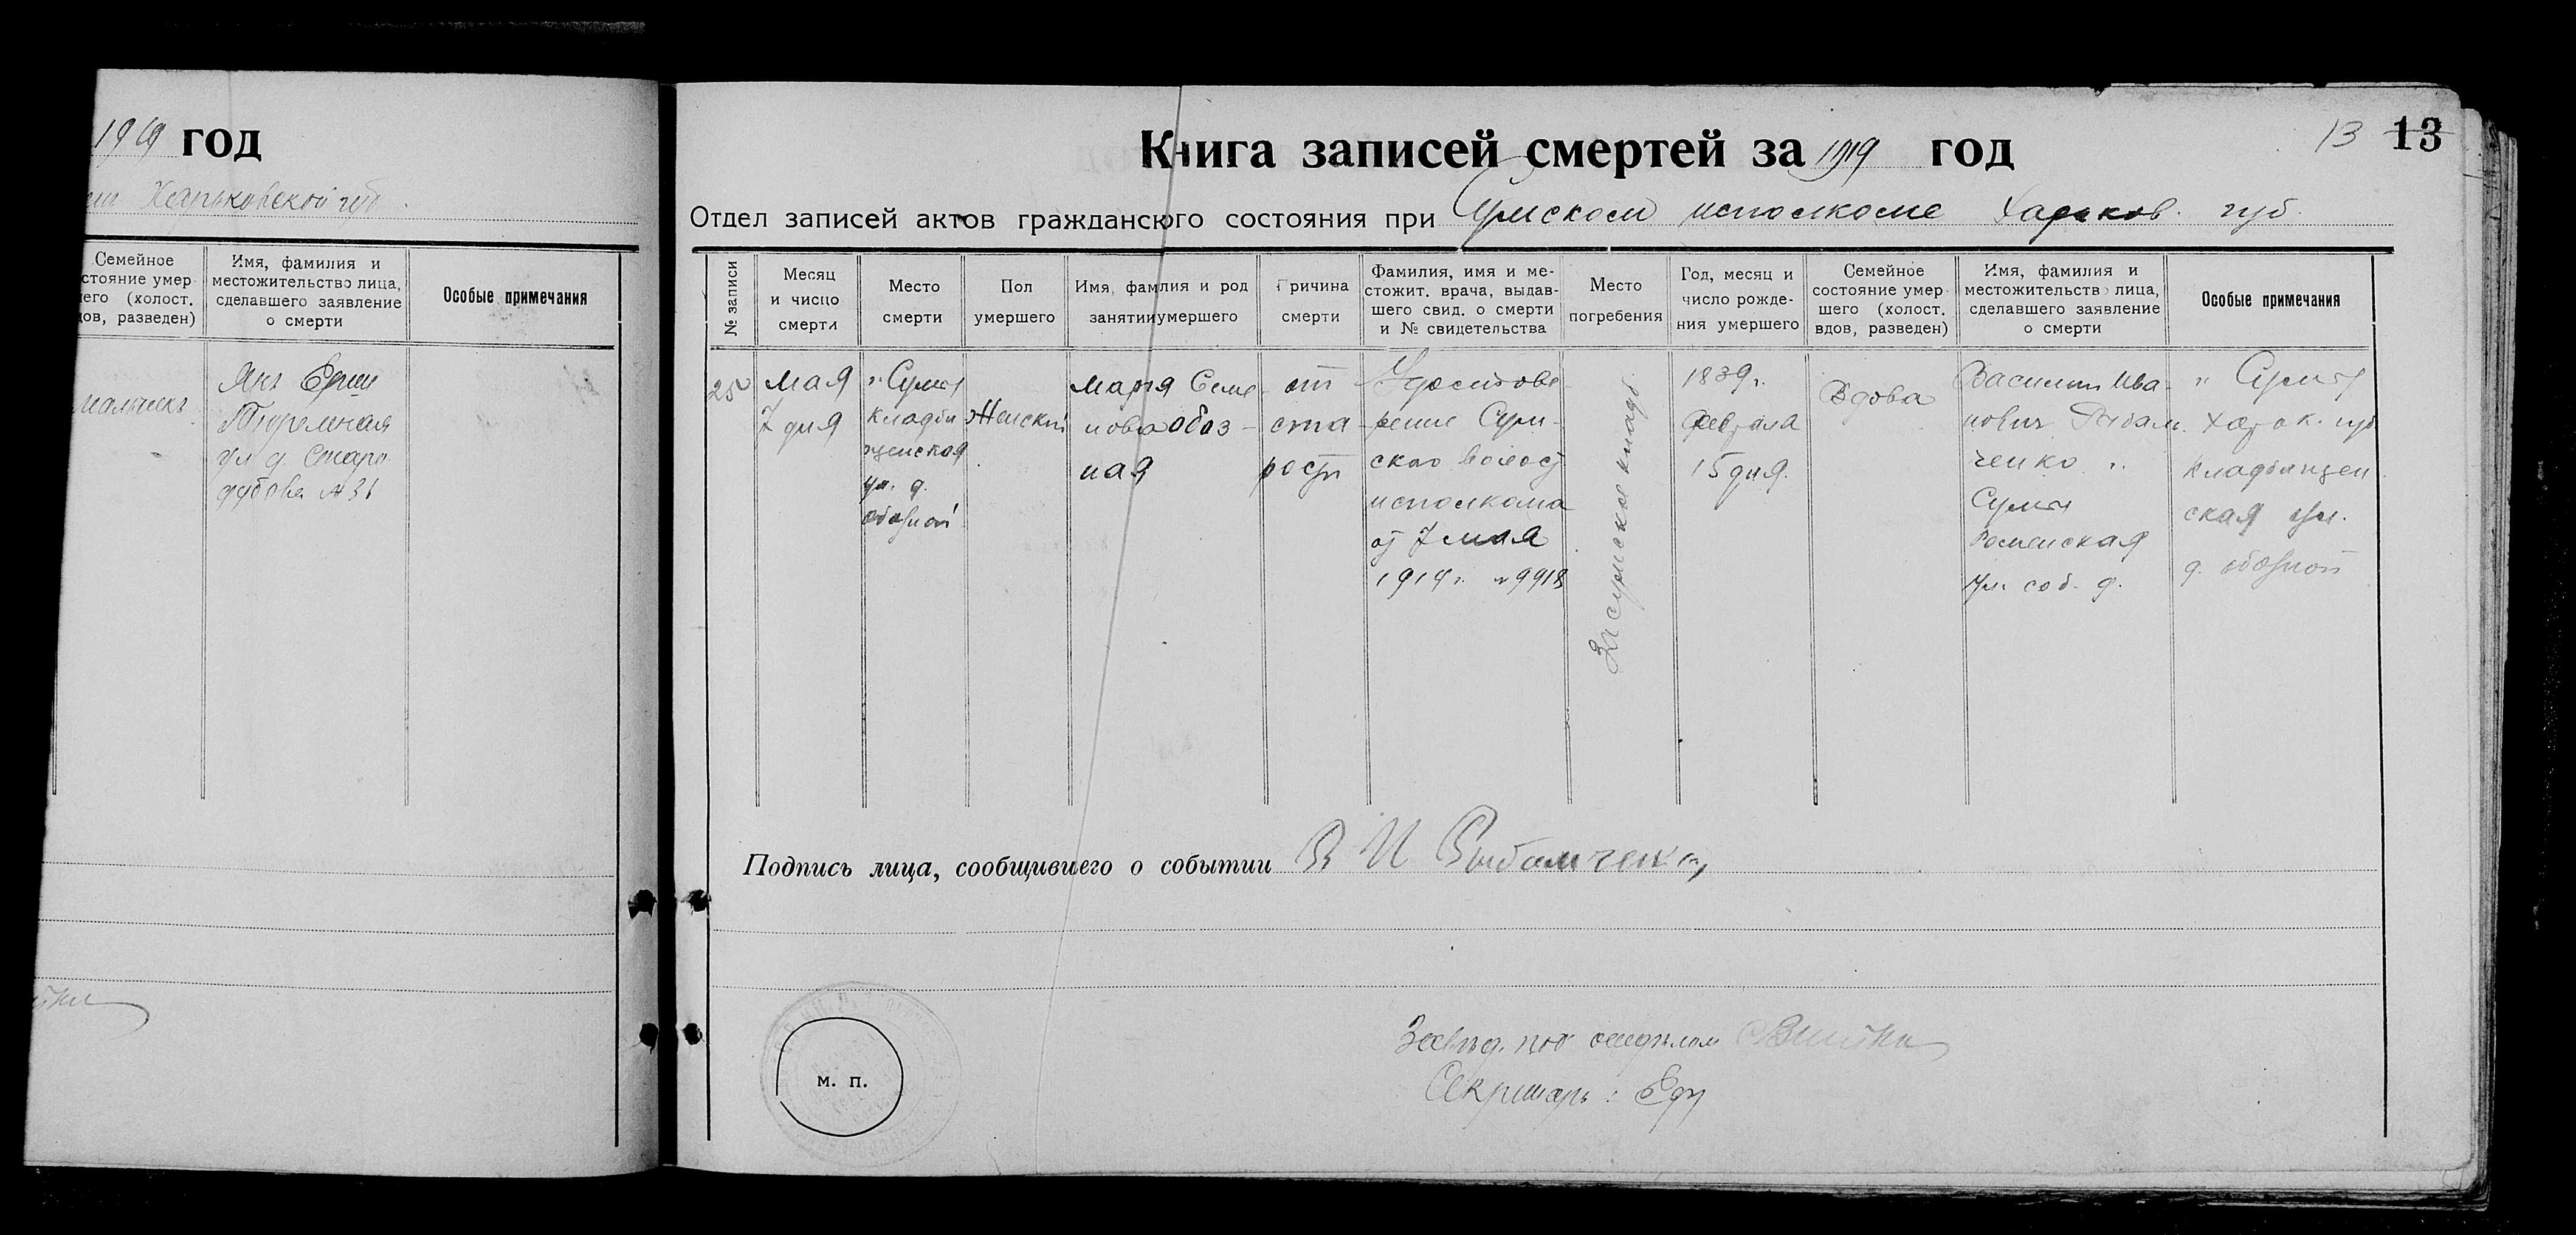 1919 год
Харьковской губ.
Семейное
стояние умер-
его (холост.
дов, разведен)
Имя, фамилия и
местожительство лица,
сделавшего заявление
о смерти
Особые примечания
мальчикъ
Тюремная
ул. д. Старо
дубова № 31
13 13
Книга записей смертей за 1919 год
Отдел записей актов гражданского состояния при Сумском исполкоме Харьков. губ.
№ записи
Месяц
и число
смерти
Место
смерти
Пол
умершего
Имя, фамлия и род
занятии умершего
Причина
смерти
Фамилия, имя и ме-
стожит. врача, выдав-
шего свид. о смерти
и № свидетельства
Место
погребения
Год, месяц и
число рожде-
ния умершего
Семейное
состояние умер-
шего (холост.
вдов, разведен)
Имя, фамилия и
местожительство лица,
сделавшего заявление
о смерти
Особые примечания
25
мая
7 дня
г. Сумы
Кладби
щенская
ул. д.
Обозной
Женский
Мария Семе-
нова Обоз-
ная
от
ста-
рости
Удостове-
рение Сум-
ского волост
исполкома
от 7 мая
1919 г. № 9918
Засумское кладб
1839 г.
Февраля
15 дня.
Вдова
Василий Ива-
нович Рыбал-
ченко г.
Сумы
Роменская
ул. соб. д.
г. Сумы
Харьк. губ
Кладбищен
ская ул.
д. Обозной
Подпись лица, сообщившего о событии В И Рыбалченко
йки
Завѣд. под отдѣлом
Секретарь:
М. П.